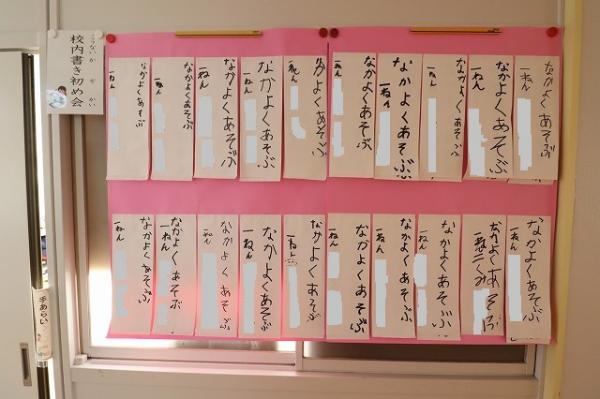 こうない か ぞ かい
校内書き初め会
なかよくあそぶ
一ねん
なかよくあそぶ
一ねん
なかよくあそぶ
一ねん
なかよくあそぶ
一ねん
なかよくあそぶ
一ねん
なかよくあそぶ
一ねん
なかよくあそぶ
一ねん
なかよくあそぶ
一ねん
なかよくあそぶ
一ねん
なかよくあそぶ
一ねん
なかよくあそぶ
一ねん
なかよくあそぶ
なかよくあそぶ
一ねん
なかよくあそぶ
一ねん
なかよくあそぶ
一ねん
なかよくあそぶ
一ねん
なかよくあそぶ
一ねん
なかよくあそぶ
一ねん
なかよくあそぶ
一ねん
なかよくあそぶ
一ねん
手あらい